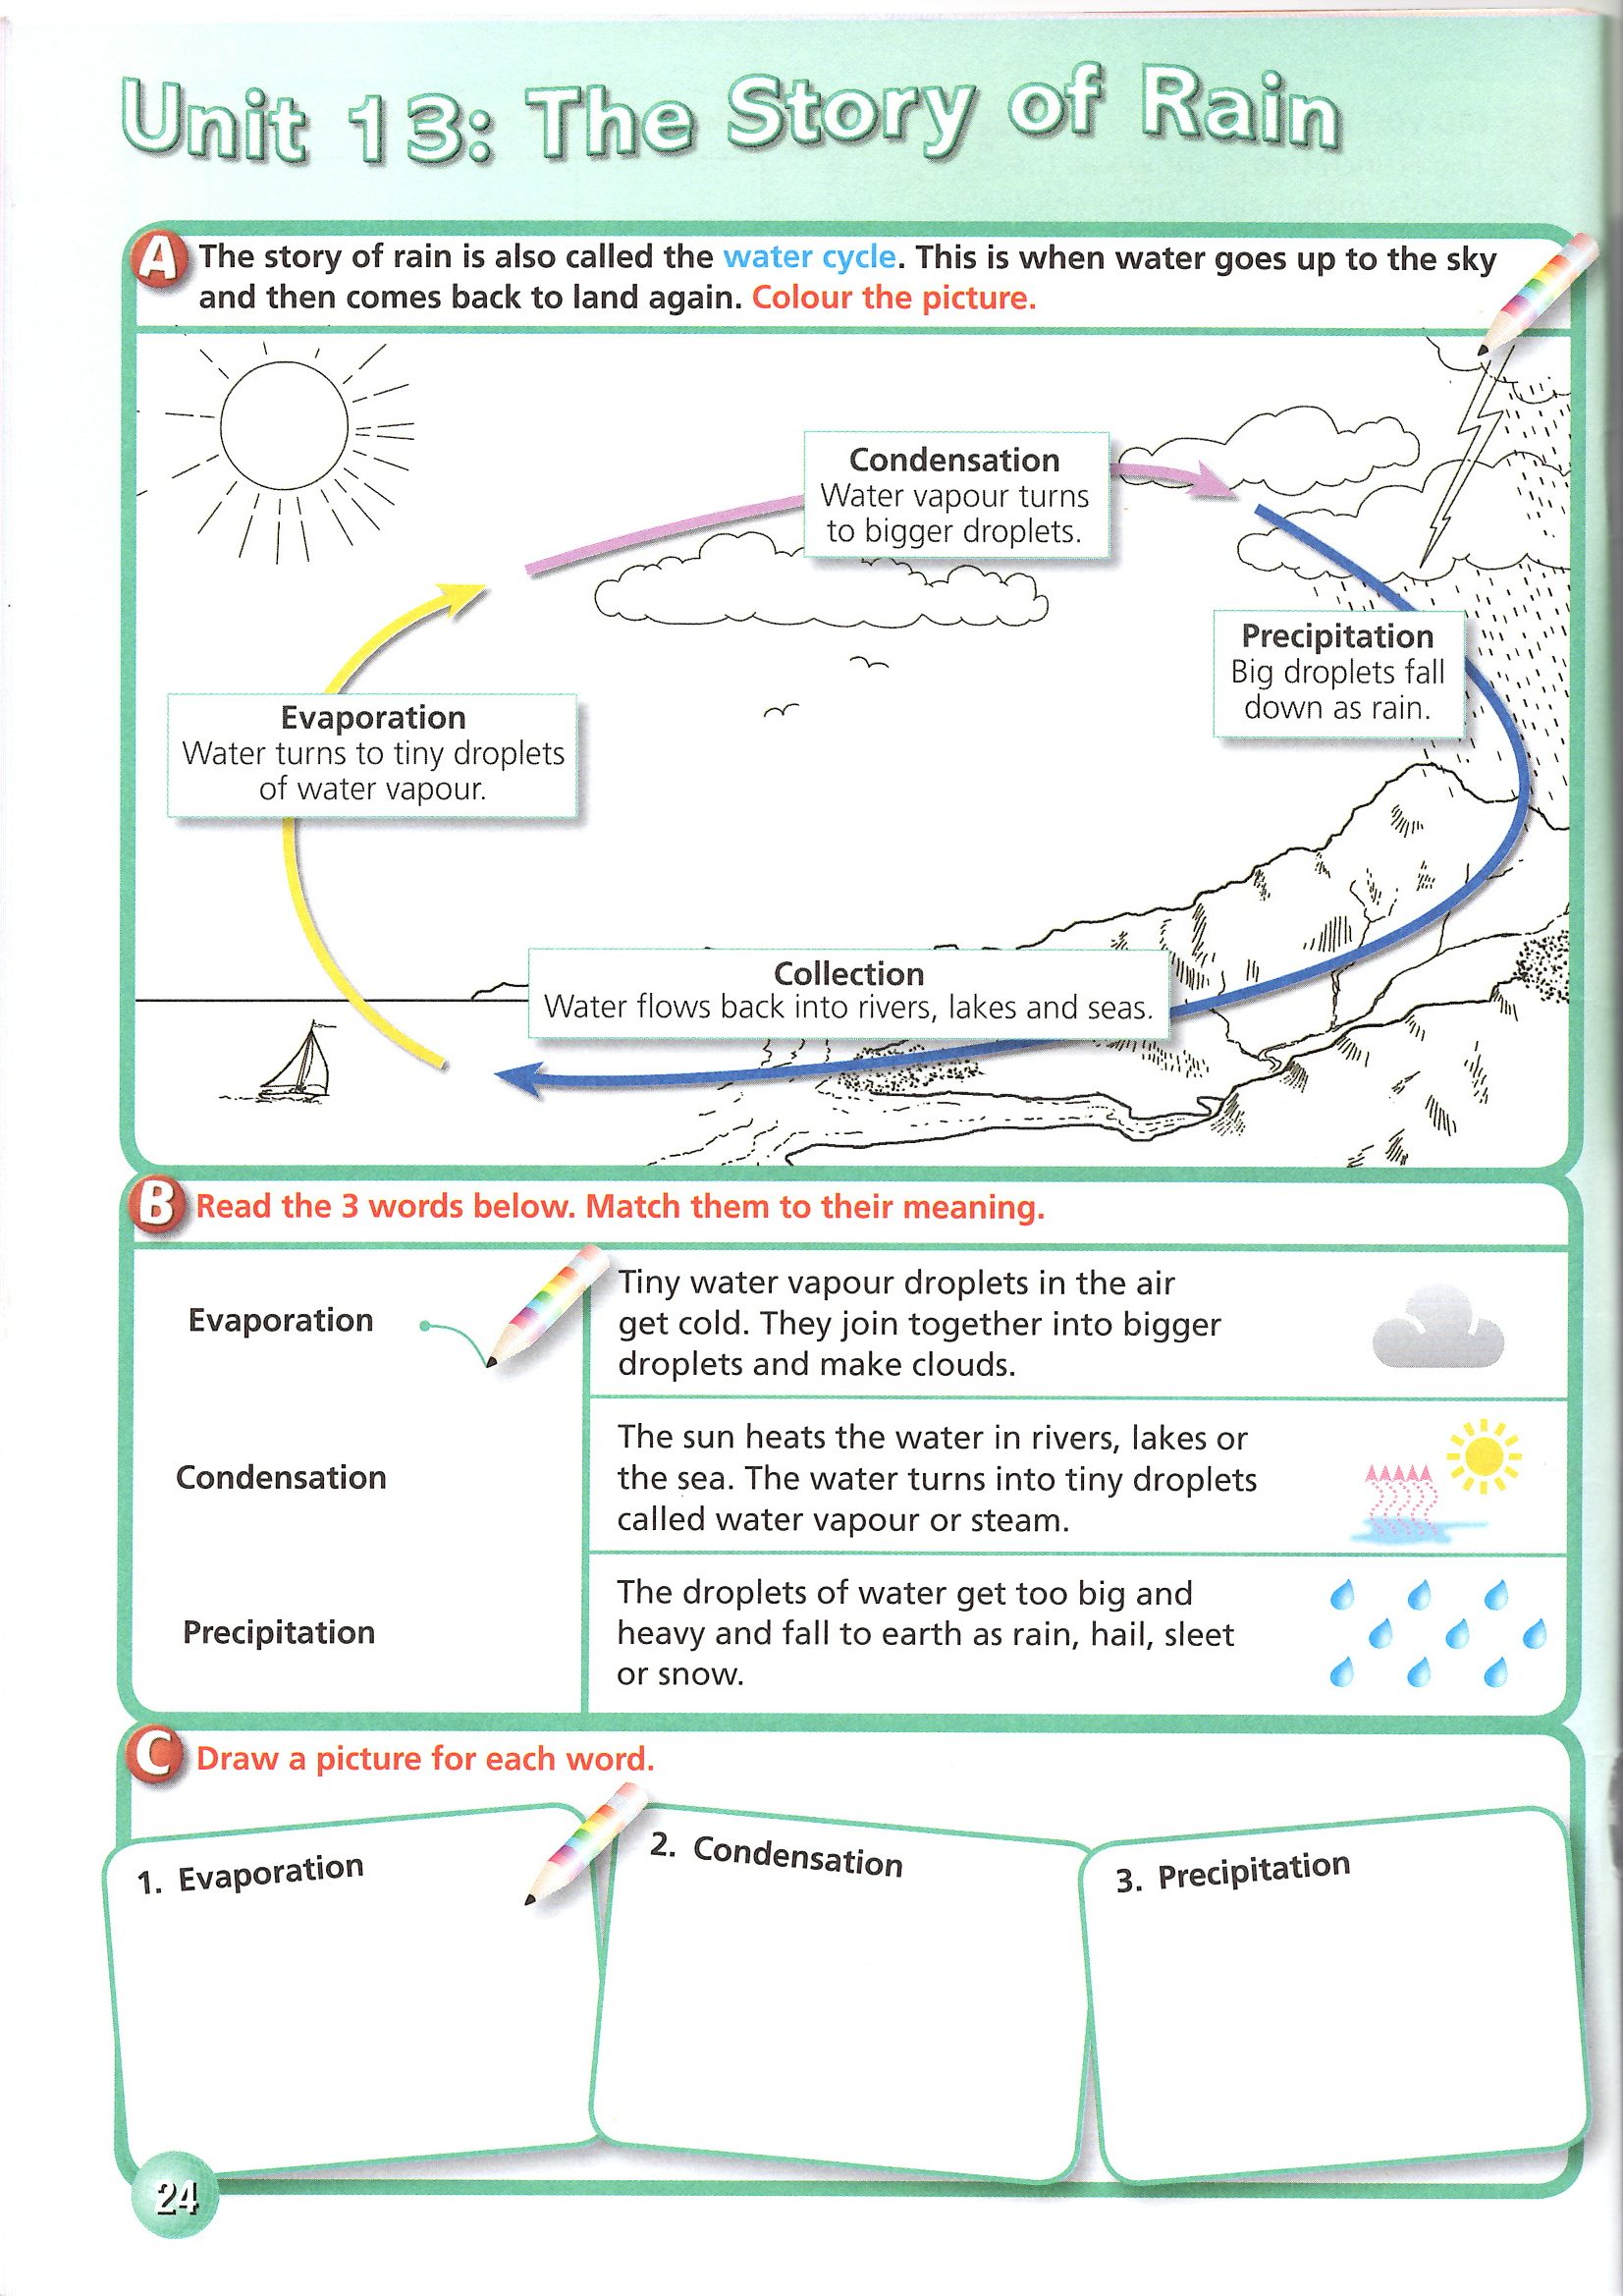 Unit 13: The Story of Rain
A
The story of rain is also called the water cycle. This is when water goes up to the sky
and then comes back to land again. Colour the picture.
Condensation
Water vapour turns
to bigger droplets.
Precipitation
Big droplets fall
down as rain.
Evaporation
Water turns to tiny droplets
of water vapour.
Collection
Water flows back into rivers, lakes and seas.
B
Read the 3 words below. Match them to their meaning.
Evaporation
Tiny water vapour droplets in the air
get cold. They join together into bigger
droplets and make clouds.
Condensation
The sun heats the water in rivers, lakes or
the sea. The water turns into tiny droplets
called water vapour or steam.
Precipitation
The droplets of water get too big and
heavy and fall to earth as rain, hail, sleet
or snow.
C
Draw a picture for each word.
1. Evaporation
2. Condensation
3. Precipitation
24